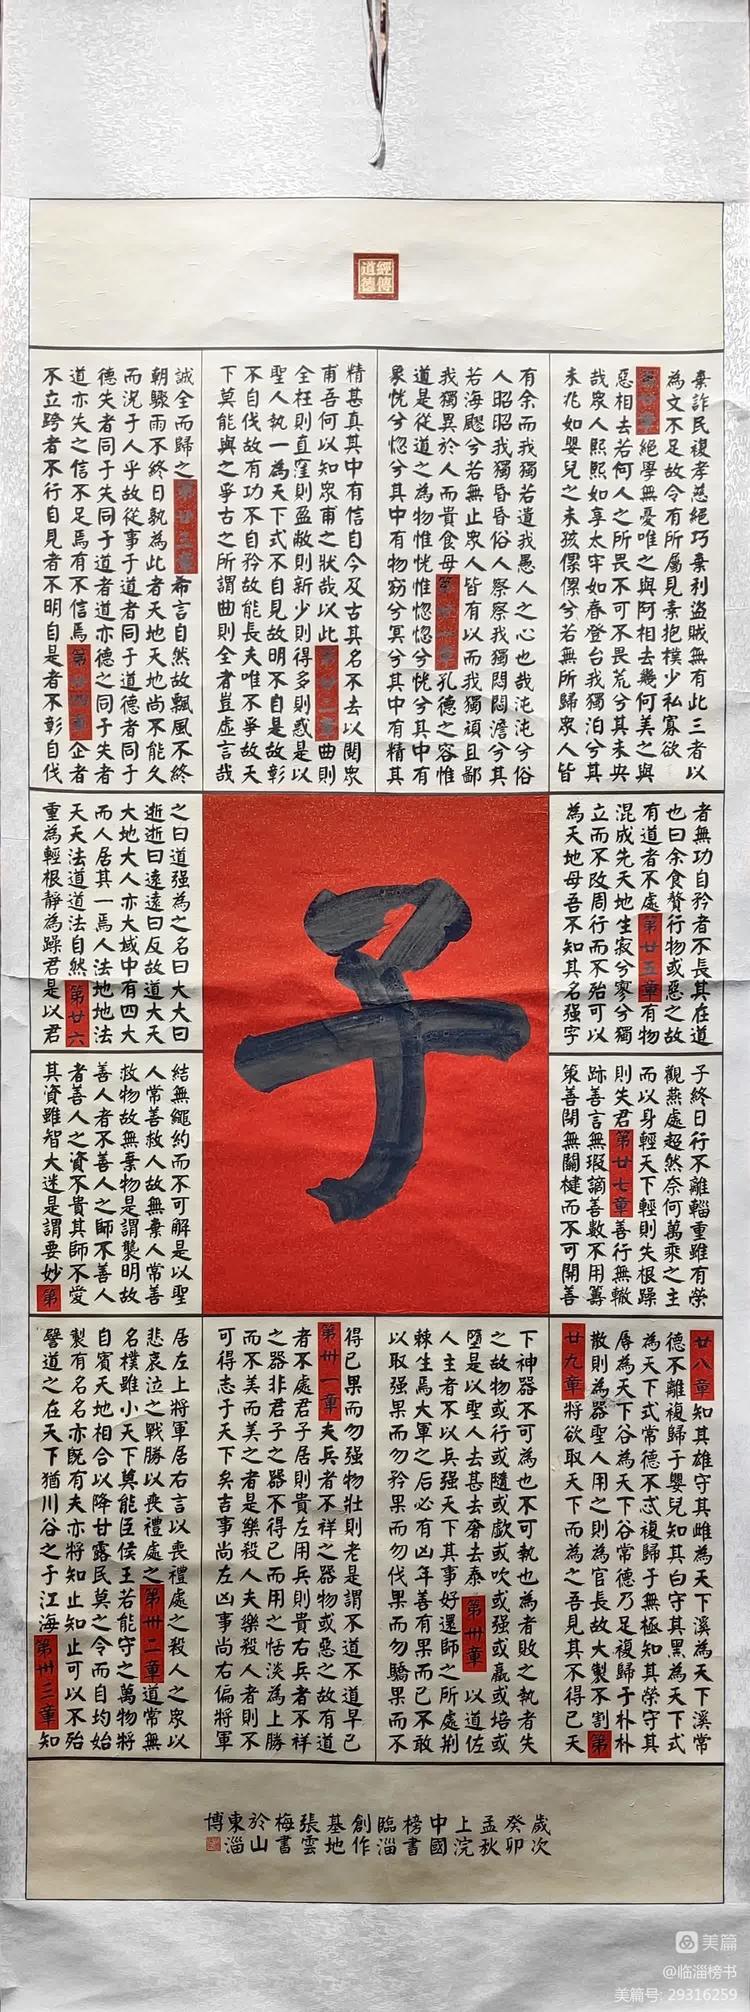 經傳道德
棄詐民複孝慈絕巧棄利盜賊無有此三者以
為文不足故令有所屬見素抱樸少私寡欲
第廿章絕學無憂唯之與阿相去幾何美之與
惡相去若何人之所畏不可不畏荒兮其未央
哉衆人熙熙如享太牢如春登台我獨泊兮其
未兆如嬰兒之未孩儽儽兮若無所歸衆人皆
有余而我獨若遺我愚人之心也哉沌沌兮俗
人昭昭我獨昏昏俗人察察我獨悶悶澹兮其
若海飂兮若無止衆人皆有以而我獨頑且鄙
我獨異於人而貴食母第廿一章孔德之容惟
道是從道之為物惟恍惟惚惚兮恍兮其中有
象恍兮惚兮其中有物窈兮冥兮其中有精其
精甚真其中有信自今及古其名不去以閱衆
甫吾何以知衆甫之狀哉以此第廿二章曲則
全枉則直窪則盈敝則新少則得多則惑是以
聖人執一為天下式不自見故明不自是故彰
不自伐故有功不自矜故能長夫唯不爭故天
下莫能與之爭古之所謂曲則全者豈虛言哉
誠全而歸之第廿三章希言自然故飄風不終
朝驟雨不終日孰為此者天地天地尚不能久
而況于人乎故從事于道者同于道德者同于
德失者同于失同于道者道亦德之同于失者
道亦失之信不足焉有不信焉第廿四章企者
不立跨者不行自見者不明自是者不彰自伐
者無功自矜者不長其在道
也曰余食贅行物或惡之故
有道者不處第廿五章有物
混成先天地生寂兮寥兮獨
立而不改周行而不殆可以
為天地母吾不知其名强字
之曰道强為之名曰大大曰
逝逝曰遠遠曰反故道大天
大地大人亦大域中有四大
而人居其一焉人法地地法
天天法道道法自然第廿六
重為輕根靜為躁君是以君
子
子終日行不離輜重雖有榮
觀燕處超然奈何萬乘之主
而以身輕天下輕則失根躁
則失君第廿七章善行無轍
跡善言無瑕謫善數不用籌
策善閉無關楗而不可開善
結無繩約而不可解是以聖
人常善救人故無棄人常善
救物故無棄物是謂襲明故
善人者不善人之師不善人
者善人之資不貴其師不愛
其資雖智大迷是謂要妙第
廿八章知其雄守其雌為天下溪為天下溪常
德不離複歸于嬰兒知其白守其黑為天下式
為天下式常德不忒複歸于無極知其榮守其
辱為天下谷為天下谷常德乃足複歸于朴朴
散則為器聖人用之則為官長故大製不割第
廿九章將欲取天下而為之吾見其不得已天
下神器不可為也不可執也為者敗之執者失
之故物或行或隨或歔或吹或强或羸或培或
墮是以聖人去甚去奢去泰第卅章以道佐
人主者不以兵强天下其事好還師之所處荆
棘生焉大軍之后必有凶年善有果而已不敢
以取强果而勿矜果而勿伐果而勿驕果而不
得已果而勿强物壯則老是謂不道不道早已
第卅一章夫兵者不祥之器物或惡之故有道
者不處君子居則貴左用兵則貴右兵者不祥
之器非君子之器不得已而用之恬淡為上勝
而不美而美之者是樂殺人夫樂殺人者則不
可得志于天下矣吉事尚左凶事尚右偏將軍
居左上將軍居右言以喪禮處之殺人之衆以
悲哀泣之戰勝以喪禮處之第卅二章道常無
名樸雖小天下莫能臣侯王若能守之萬物將
自賓天地相合以降甘露民莫之令而自均始
製有名名亦既有夫亦將知止知止可以不殆
譬道之在天下猶川谷之于江海第卅三章知
歲次
癸卯
孟秋
上浣
中國
榜書
臨淄
創作
基地
張雲
梅書
於山
東淄
博
美篇
@临淄榜书
美篇号: 29316259